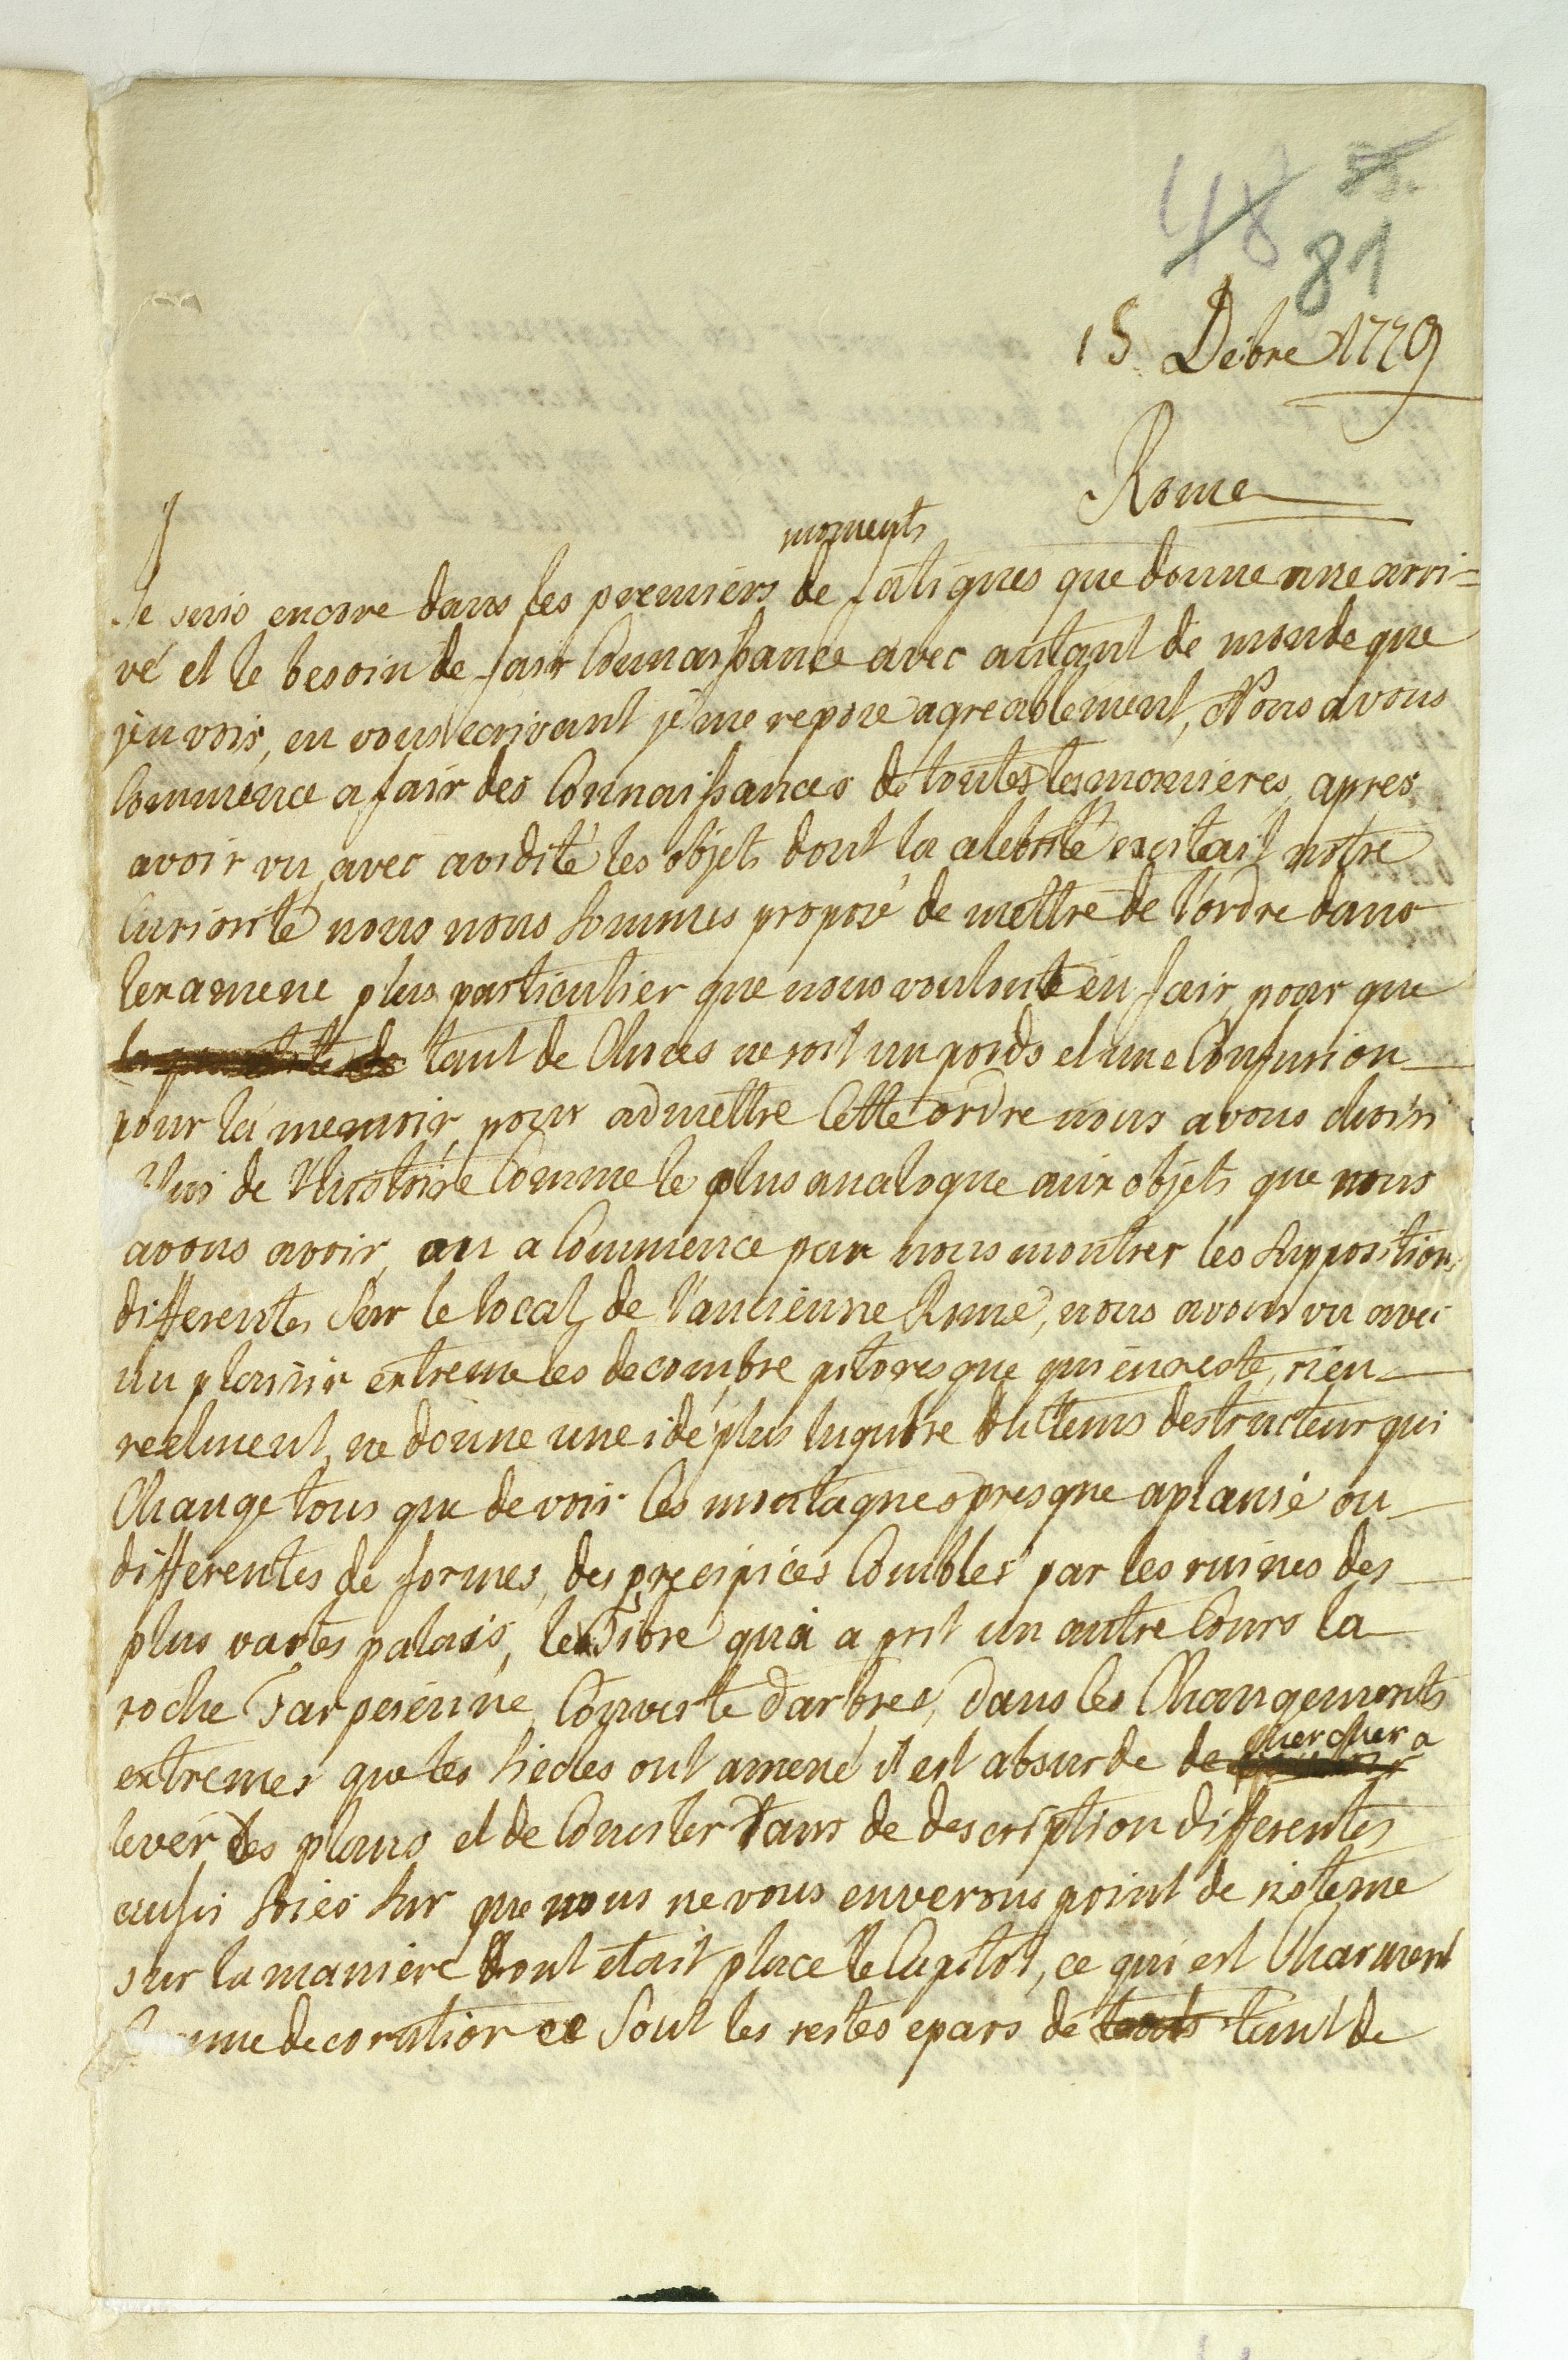 48 55.
81
15 Debre 1779
Rome
moments
Je suis encore dans les premiers de fatigues que donne une arri=
vé et le besoin de fair Connaissance avec autant de monde que
j'en vois, en vous ecrivant je me repose agreablement, Nous avons
Commencé a fair des Connaissances de toutes les manieres, apres
avoir vu avec avidité les objets dont la celebrité excitait notre
Curiosité nous nous sommes proposé de mettre de l'ordre dans
lexamene plus particulier que nous voulont en fair pour que
tant de Choses ne soit un poids et une Confusion
pour la memoir, pour admettre Cette ordre nous avons choisi
de l'histoire Comme le plus analogue aux objets que nous
avons avoir, on a Commencé par nous montrer les Suppositions
differentes Sur le local de l'ancienne Rome, nous avons vu avec
un plaisir extreme les decombre pitoresque qui en reste, rien
reelment ne donne une idé plus lugubre du tems destructeur qui
Change tous que de voir les montagnes presque aplanie ou
differentes de formes, des precipices Comblés par les ruines des
plus vastes palais, le Tibre qui a prit un autre Cours la
roche Tarpeienne, Couverte d'arbres, dans les Changements
extremes que les siecles ont amené il est absurde de chercher a
lever des plans et de Concilier tans de description differentes
aussi soiés sur que nous ne vous enverons point de sisteme
sur la maniere dont etait placé le Capitol, ce qui est Charment
comme decoration ce Sont les restes epars de tant de